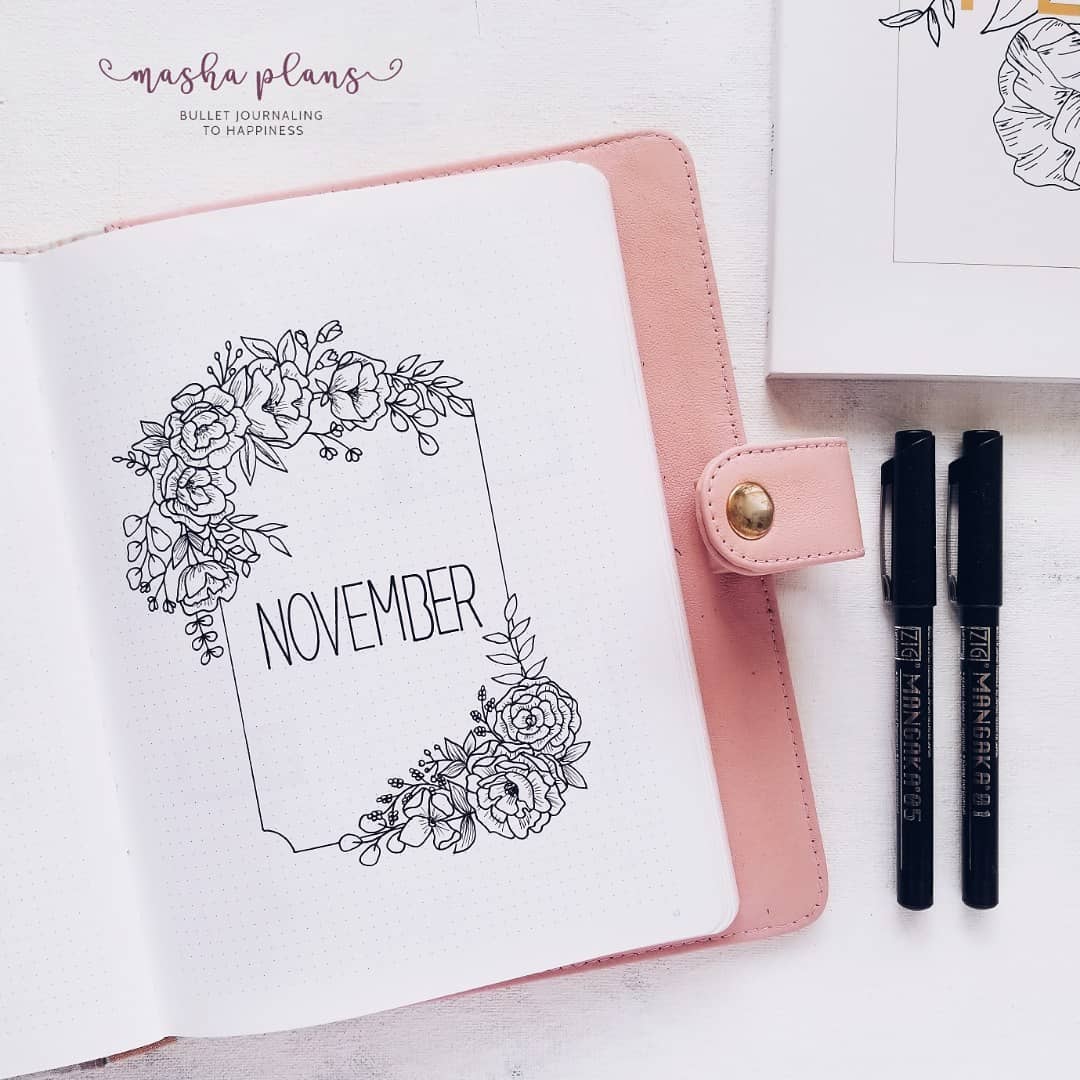 masha plans
BULLET JOURNALING
TO HAPPINESS
NOVEMBER
ZIG MANGAKA 05
ZIG MANGAKA 01